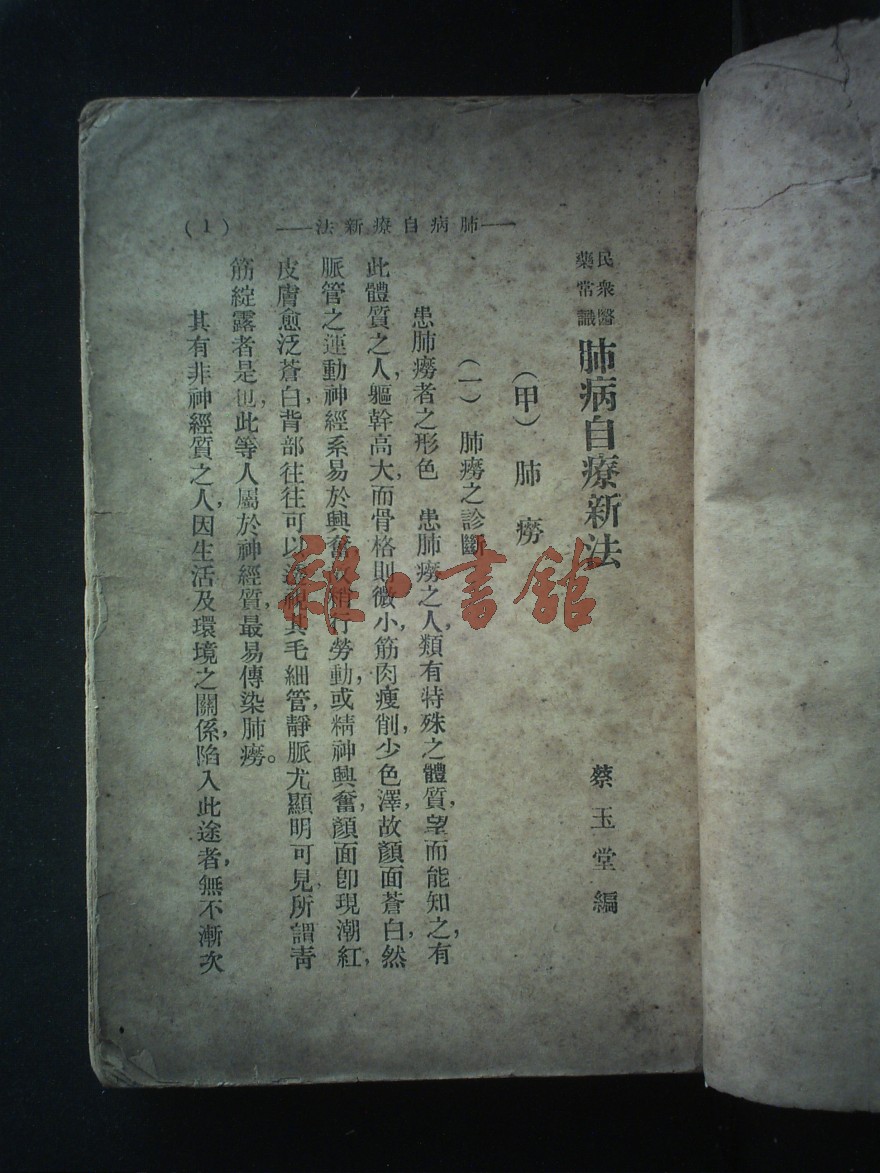 ——肺病自療新法——
（1）
民衆醫
藥常識
肺病自療新法
蔡玉堂編
（甲）肺癆
（一）肺癆之診斷
患肺癆者之形色　患肺癆之人，類有特殊之體質，望而能知之，有
此體質之人，軀幹高大，而骨格則微小，筋肉瘦削，少色澤，故顏面蒼白，然
脈管之運動神經系易於興奮，故稍行勞動，或精神興奮，顏面卽現潮紅，
皮膚愈泛蒼白，背部往往可以透視其毛細管，靜脈尤顯明可見，所謂靑
筋綻露者是也，此等人屬於神經質，最易傳染肺癆。
其有非神經質之人，因生活及環境之關係，陷入此途者，無不漸次
雜·書館